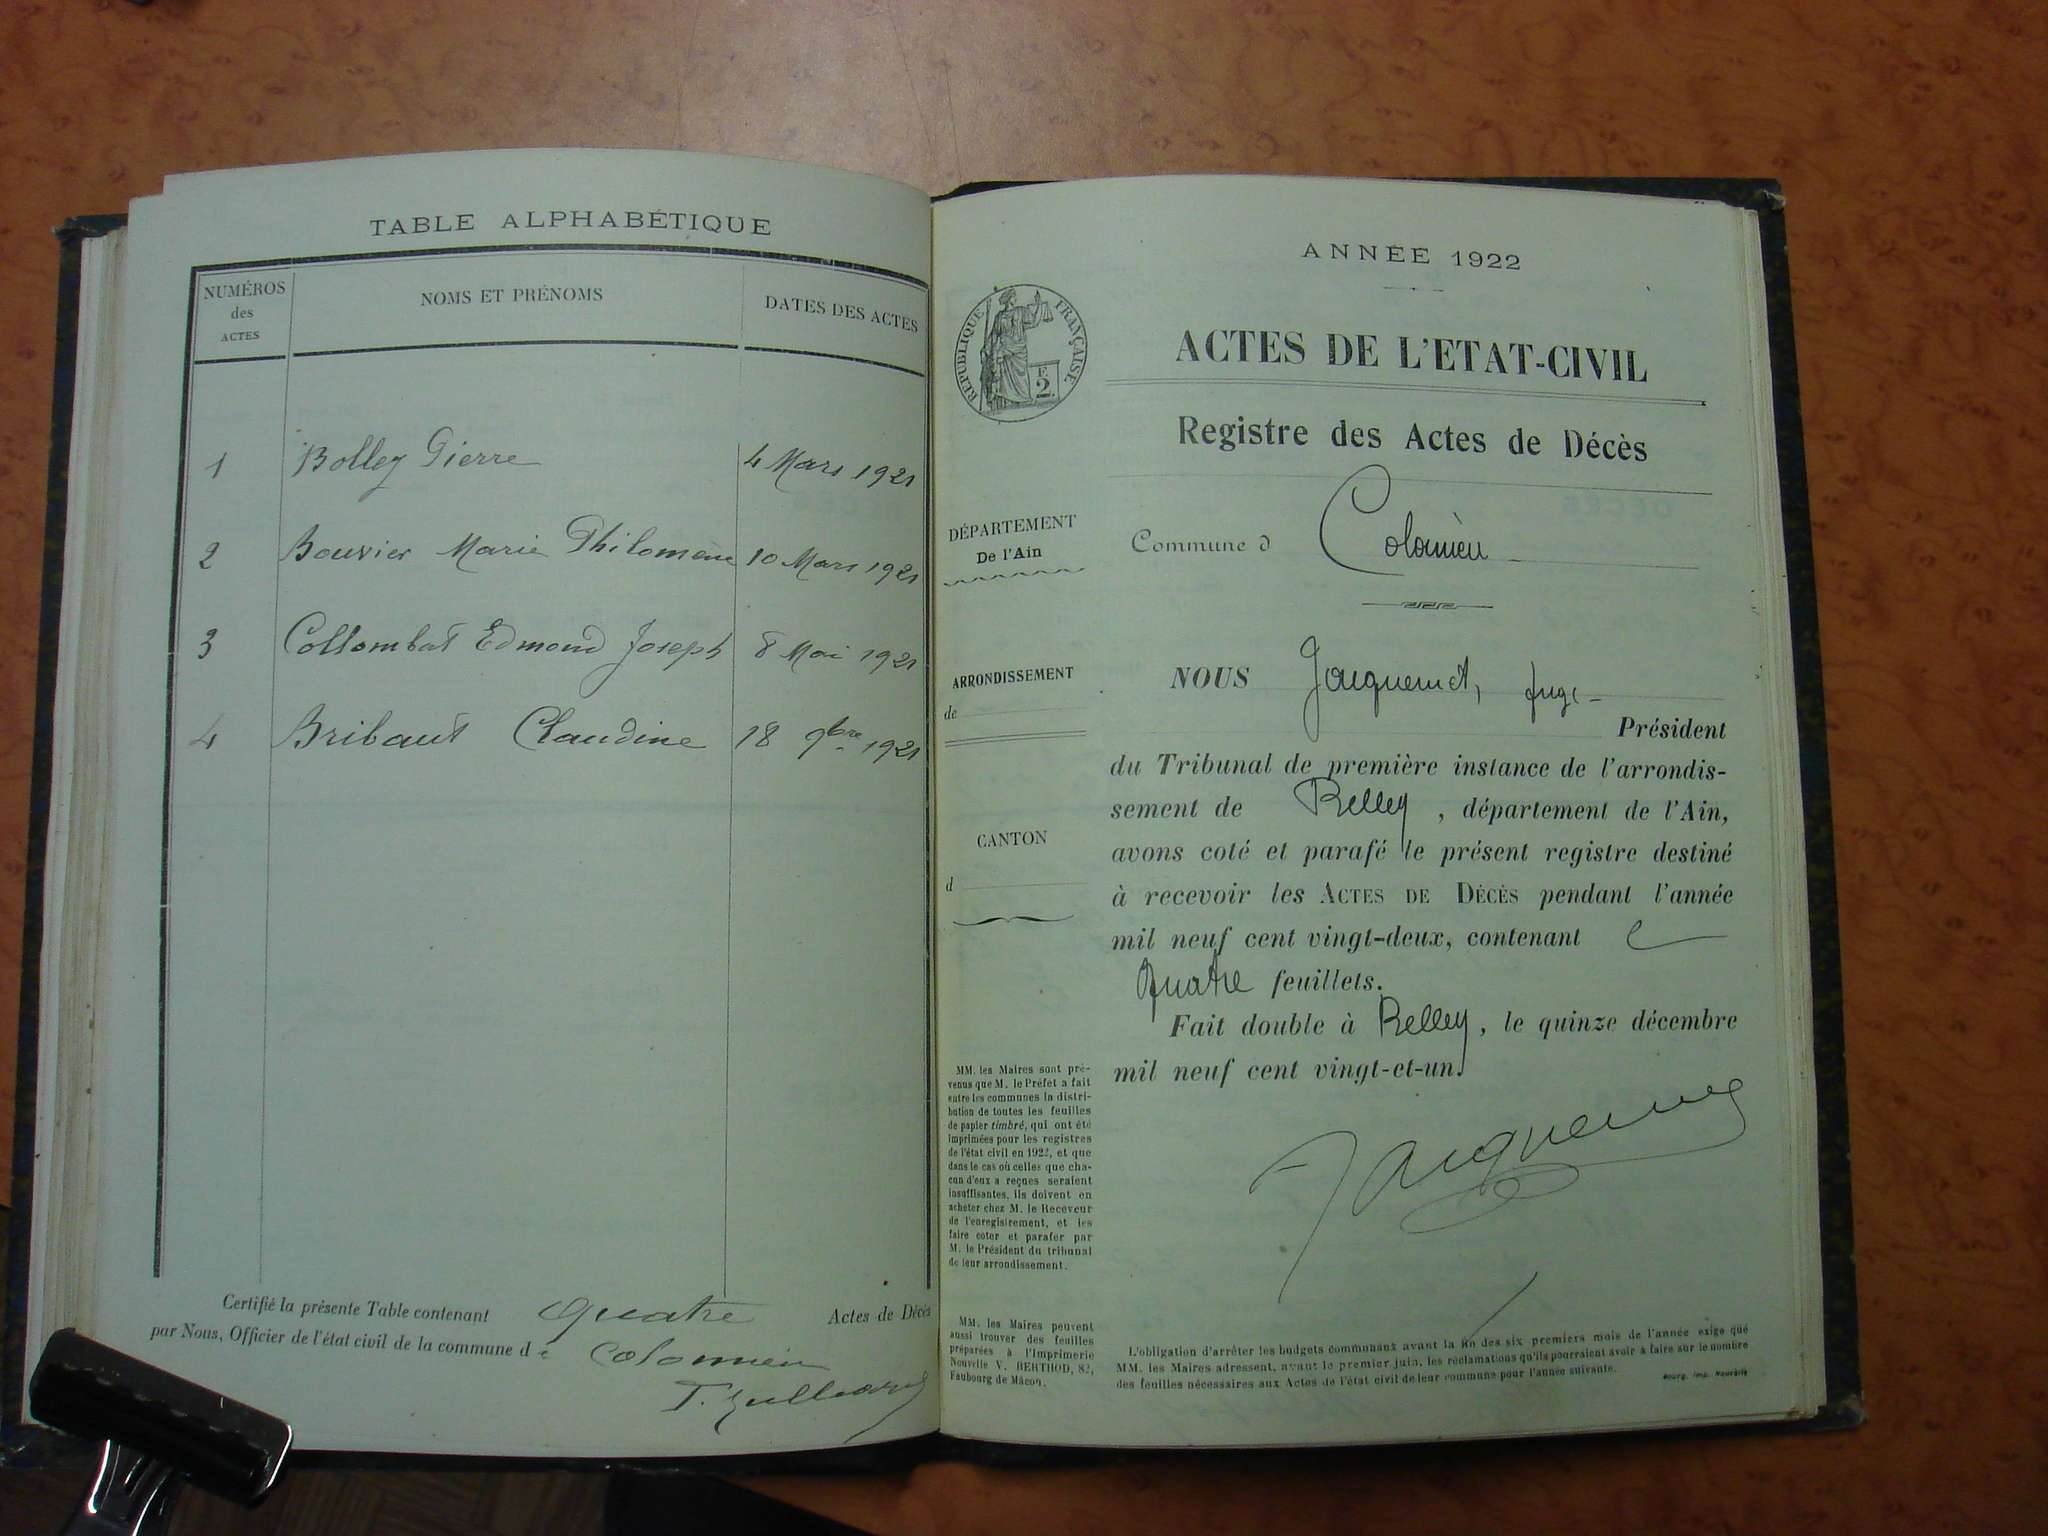 TABLE ALPHABÉTIQUE
NUMÉROS
des
ACTES
NOMS ET PRÉNOMS
DATES DES ACTES
1 Bolley Pierre 4 Mars 1921
2 Bouvier Marie Philomène 10 Mars 1921
3 Collombat Edmond Joseph 8 Mai 1921
4 Bribaut Claudine 18 9bre 1921
Certifié la présente Table contenant Quatre Actes de Décès
par Nous, Officier de l'état civil de la commune de Colomieu
ANNÉE 1922
RÉPUBLIQUE FRANÇAISE
F.
2.
ACTES DE L'ETAT-CIVIL
Registre des Actes de Décès
DÉPARTEMENT
De l'Ain
Commune d Colomieu
ARRONDISSEMENT
de
CANTON
d
NOUS Jacquemet, juge
Président
du Tribunal de première instance de l'arrondis-
sement de Belley, département de l'Ain,
avons coté et parafé le présent registre destiné
à recevoir les ACTES DE DÉCÈS pendant l'année
mil neuf cent vingt-deux, contenant
Quatre feuillets.
Fait double à Belley, le quinze décembre
mil neuf cent vingt-et-un.
Jacquemet
MM. les Maires sont pré-
venus que M. le Préfet a fait
entre les communes la distri-
bution de toutes les feuilles
de papier timbré, qui ont été
imprimées pour les registres
de l'état civil en 1922, et que
dans le cas où celles que cha-
cun d'eux a reçues seraient
insuffisantes, ils doivent en
acheter chez M. le Receveur
de l'enregistrement, et les
faire coter et parafer par
M. le Président du tribunal
de leur arrondissement.
MM. les Maires peuvent
aussi trouver des feuilles
préparées à l'Imprimerie
Nouvelle V. BERTHOD, 82,
Faubourg de Mâcon.
L'obligation d'arrêter les budgets communaux avant la fin des six premiers mois de l'année exige que
MM. les Maires adressent, avant le premier juin, les réclamations qu'ils pourraient avoir à faire sur le nombre
des feuilles nécessaires aux Actes de l'état civil de leur commune pour l'année suivante.
Bourg, Imp. Nouvelle